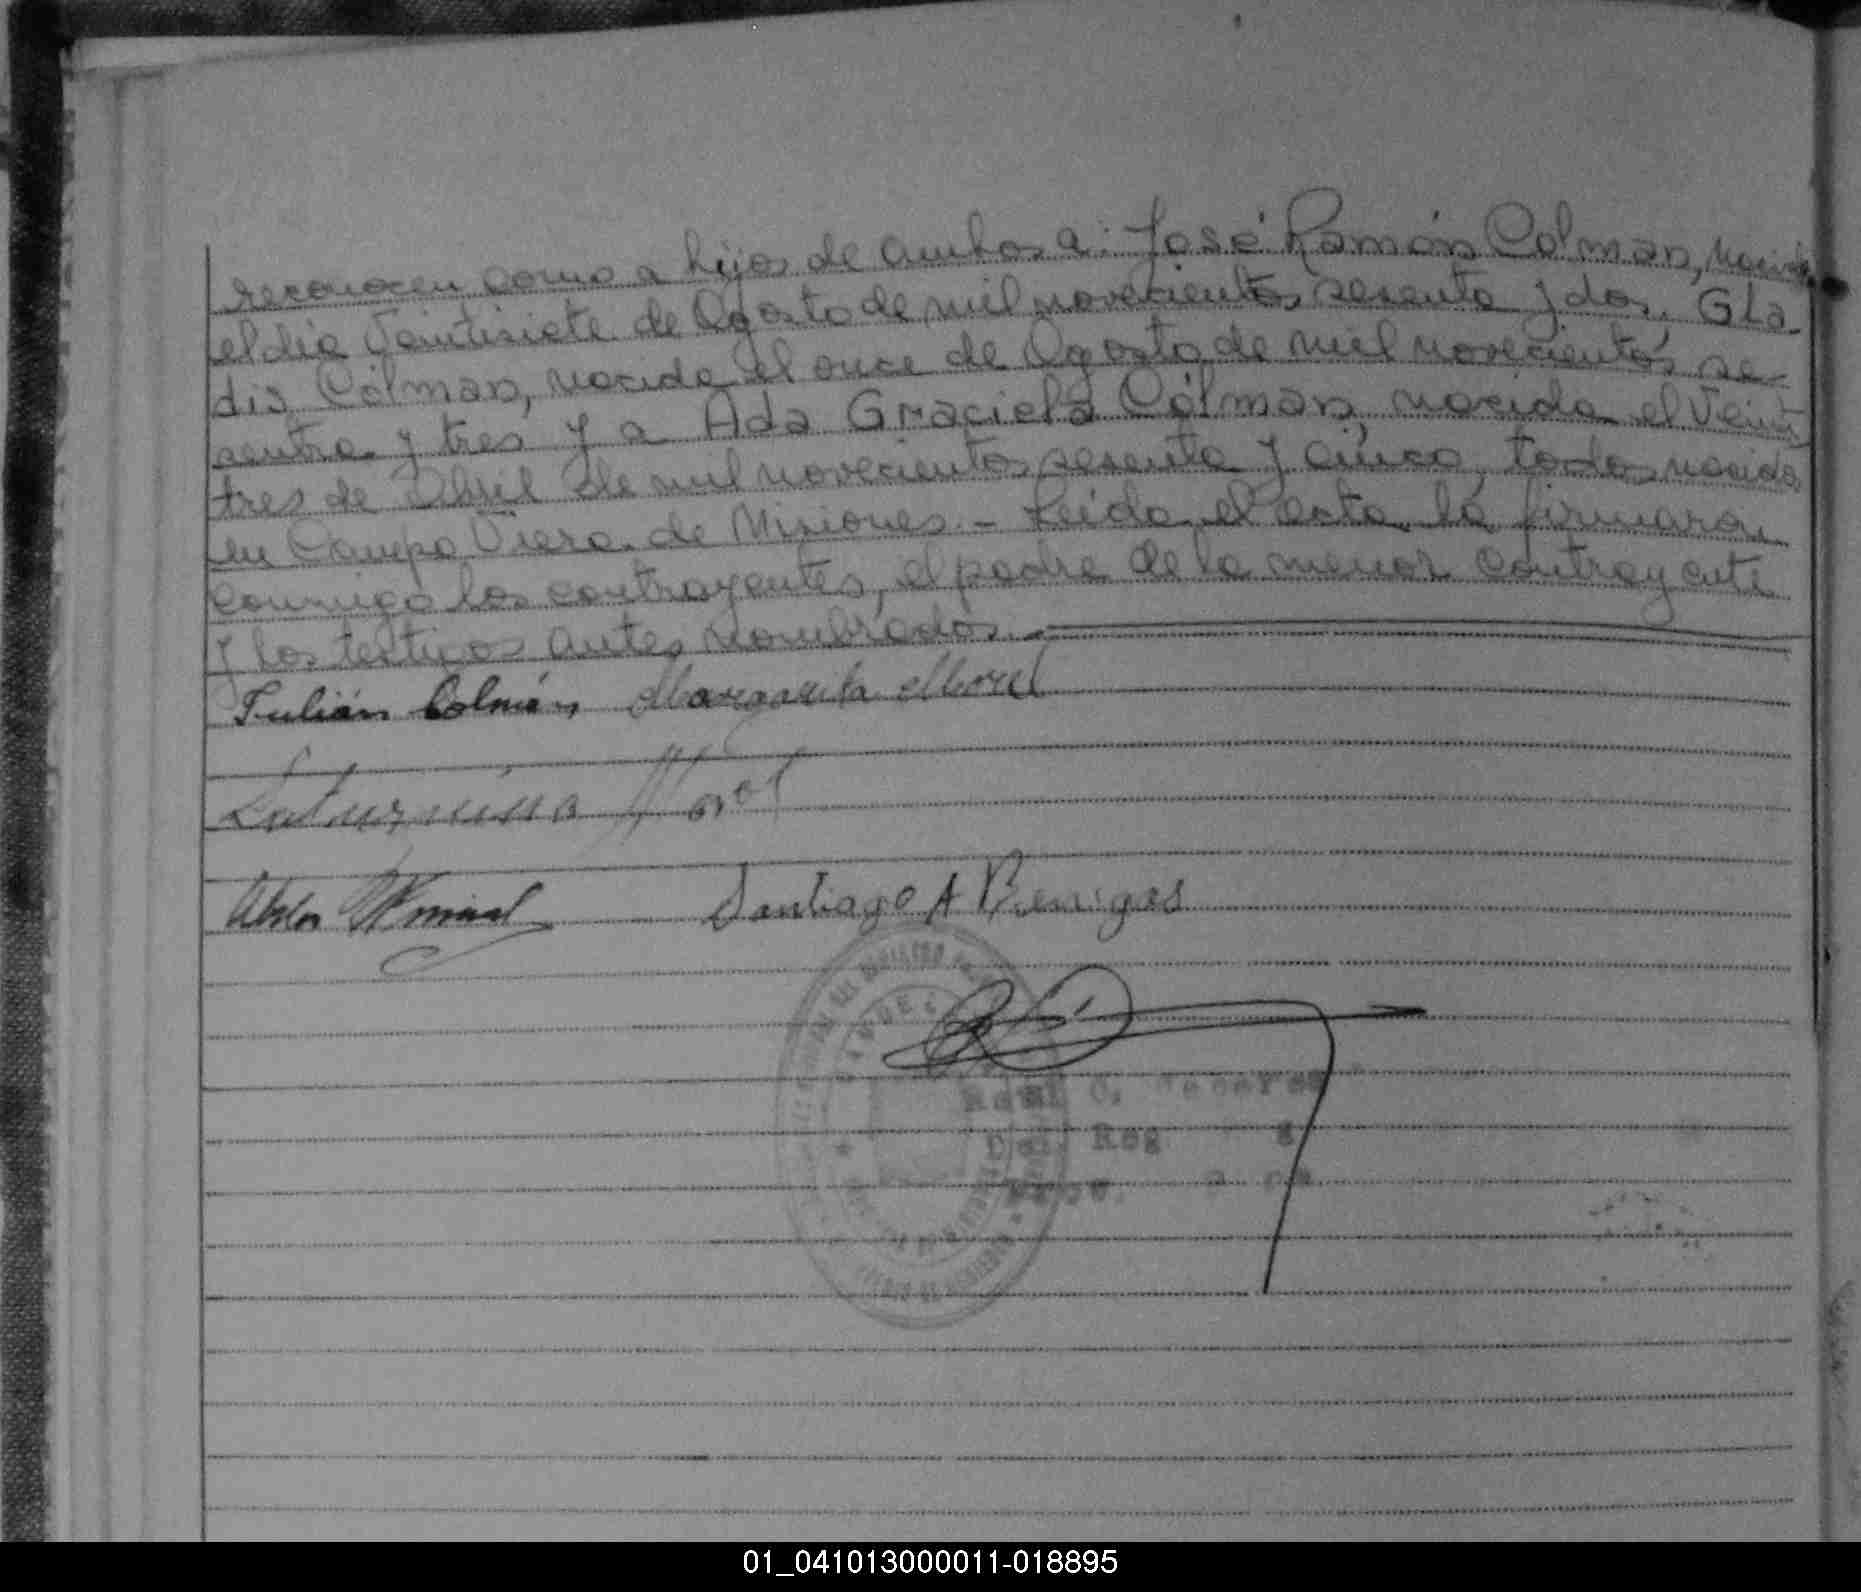 reconocen como a hijos de ambos a: José Ramón Colman, nacido
el dia Veintisiete de Agosto de mil novecientos sesenta y dos, Gla-
dis Cólman, nacida el once de Agosto de mil novecientos se-
senta y tres y a Ada Graciela Cólman, nacida el Veinti
tres de Abril de mil novecientos sesenta y cinco, todos nacidos
en Campo Viera de Misiones - Leida el acta la firmaron
conmigo los contrayentes, el padre de la menor contrayente
y los testigos antes nombrados.
Julián Colmán Margarita Morel
Saturnino Morel
Santiago A Benigas
Raul C.
Del. Reg
01_041013000011-018895